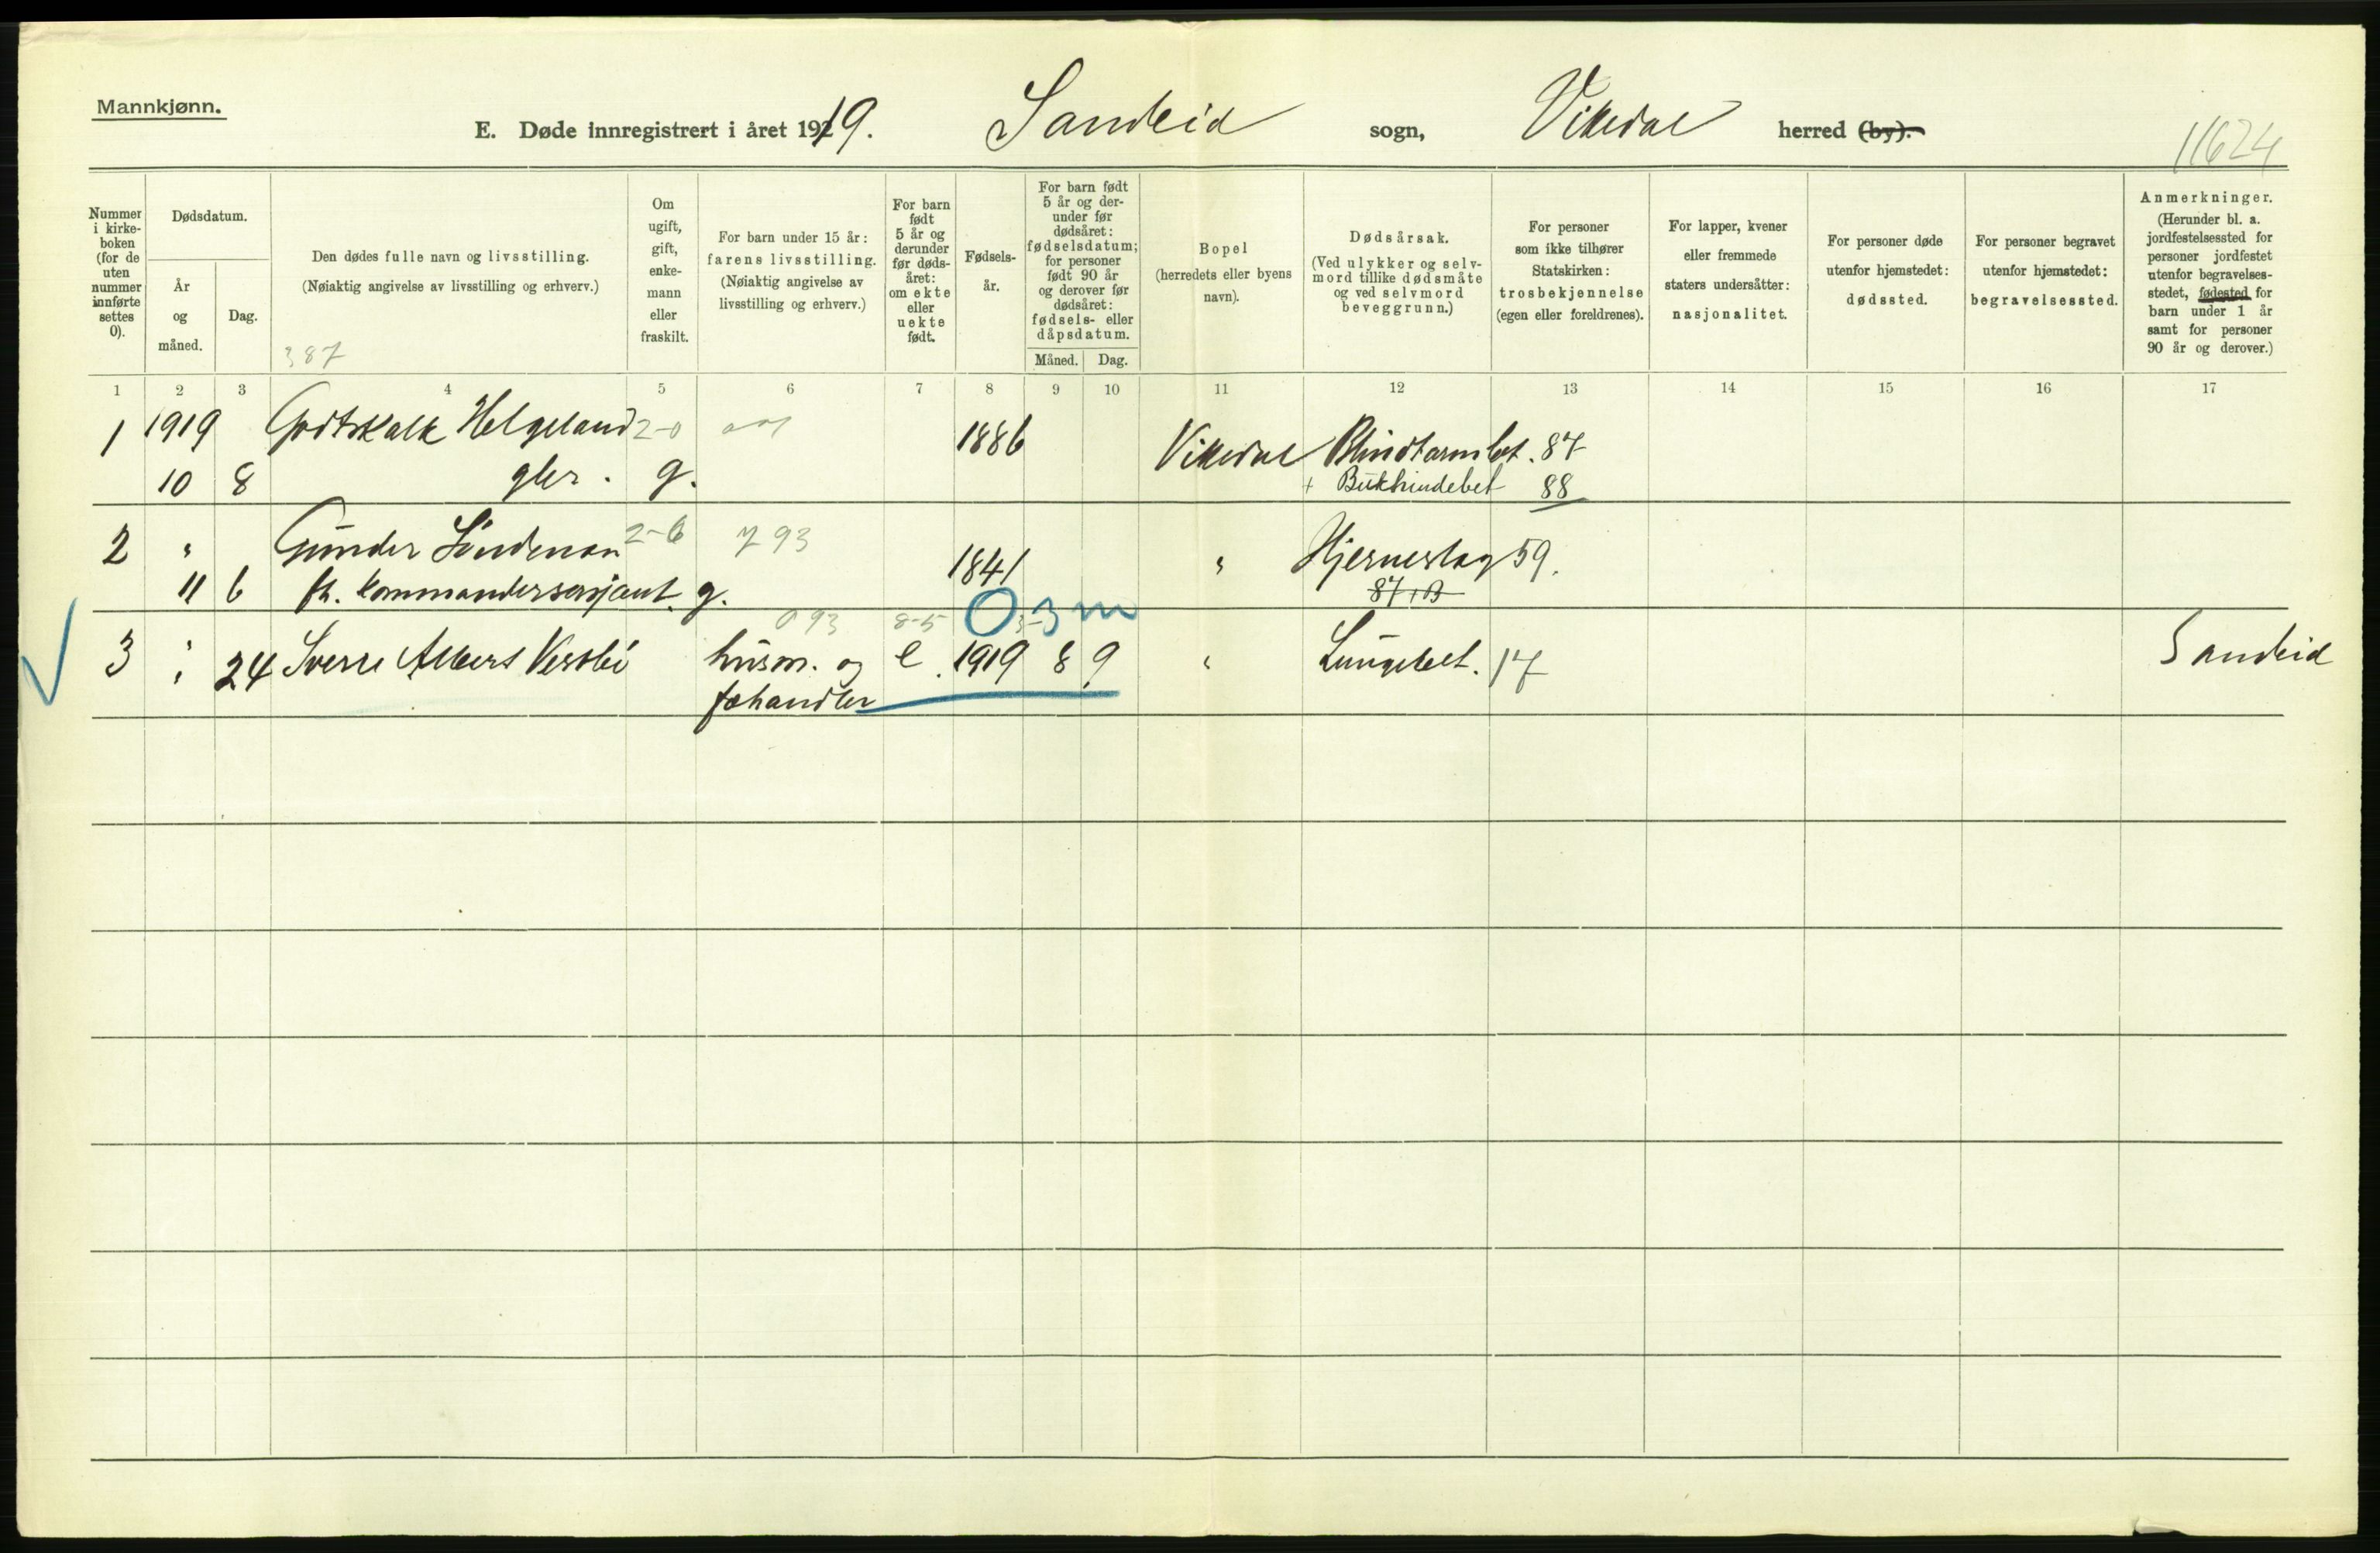 Mannkjønn.
E. Døde innregistrert i året 1919. Sandeid sogn, Vikedal herred (by).
11624
Nummer i kirkeboken (for de uten nummer innførte settes 0).
Dødsdatum.
År og måned.
Dag.
Den dødes fulle navn og livsstilling.
(Nøiaktig angivelse av livsstilling og erhverv.)
387
Om ugift, gift, enkemann eller fraskilt.
For barn under 15 år: farens livsstilling.
(Nøiaktig angivelse av livsstilling og erhverv.)
For barn født 5 år og derunder før dødsåret: om ekte eller uekte født.
Fødselsår.
For barn født 5 år og derunder før dødsåret: fødselsdatum; for personer født 90 år og derover før dødsåret: fødsels- eller dåpsdatum.
Måned.
Dag.
Bopel
(herredets eller byens navn).
Dødsårsak.
(Ved ulykker og selvmord tillike dødsmåte og ved selvmord beveggrunn.)
For personer som ikke tilhører Statskirken: trosbekjennelse (egen eller foreldrenes).
For lapper, kvener eller fremmede staters undersåtter: nasjonalitet.
For personer døde utenfor hjemstedet: dødssted.
For personer begravet utenfor hjemstedet: begravelsessted.
Anmerkninger.
(Herunder bl. a. jordfestelsessted for personer jordfestet utenfor begravelsesstedet, fødested for barn under 1 år samt for personer 90 år og derover.)
1 2 3 4 5 6 7 8 9 10 11 12 13 14 15 16 17
1 1919 Godtskalk Helgeland 2-0 1886 Vikedal Blindtarmbet. 87
10 8 gbr. g. + Bukhindebet 88
2 " Gunder Søndenaa 2-6 793 1841 " Hjerneslag 59.
11 6 fh. kommandersersjant. g. 87+B
093 8-5 0 3-3 m
3 " 24 Sverre Albert Versbø husm. og e. 1919 8 9 " Lungebet. 17 Sandeid
fehandler